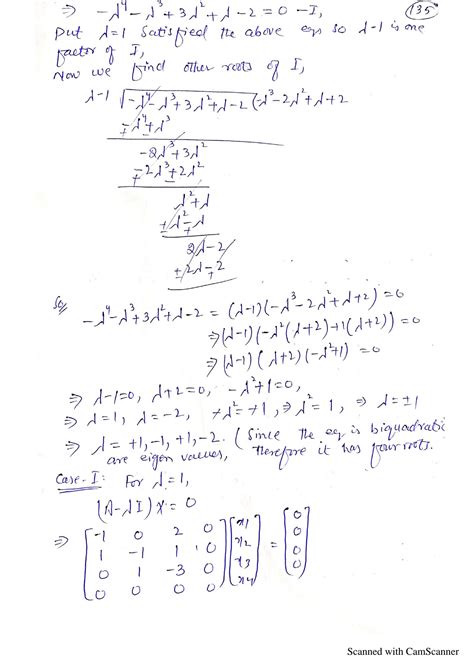 ⇒ -λ⁴-λ³+3λ²+λ-2=0 -I, (135)
Put λ=1 Satisfied the above eqn so λ-1 is one
factor of I,
Now we find other roots of I,
λ-1 √-λ⁴-λ³+3λ²+λ-2 (-λ³-2λ²+λ+2
∓λ⁴±λ³
-2λ³+3λ²
∓2λ³±2λ²
λ²+λ
±λ²∓λ
2λ-2
±2λ∓2
So, -λ⁴-λ³+3λ²+λ-2 = (λ-1)(-λ³-2λ²+λ+2)=0
⇒(λ-1)(-λ²(λ+2)+1(λ+2))=0
⇒(λ-1)(λ+2)(-λ²+1)=0
⇒ λ-1=0, λ+2=0, -λ²+1=0,
⇒ λ=1, λ=-2, +λ²=+1, ⇒ λ²=1, ⇒ λ=±1
⇒ λ=+1,-1,+1,-2. (Since the eq is biquadratic
are eigen values, therefore it has four roots.
Case-I: For λ=1,
(A-λI)X=0
⇒ [-1 0 2 0] [x1] [0]
[1 -1 1 0] [x2] = [0]
[0 1 -3 0] [x3] [0]
[0 0 0 0] [x4] [0]
Scanned with CamScanner